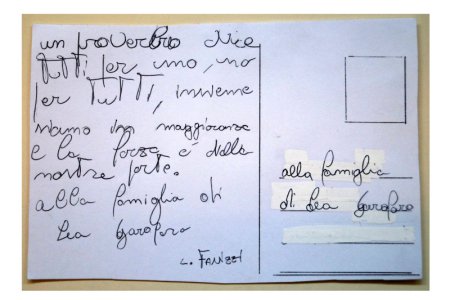 un proverbio dice
tutti per uno, uno
per TUTTI, insieme
siamo in maggioranza
e la forza è dalla
nostra parte.
alla famiglia di
Lea Garofalo
L. FANIZZI
alla famiglia
di Lea Garofalo